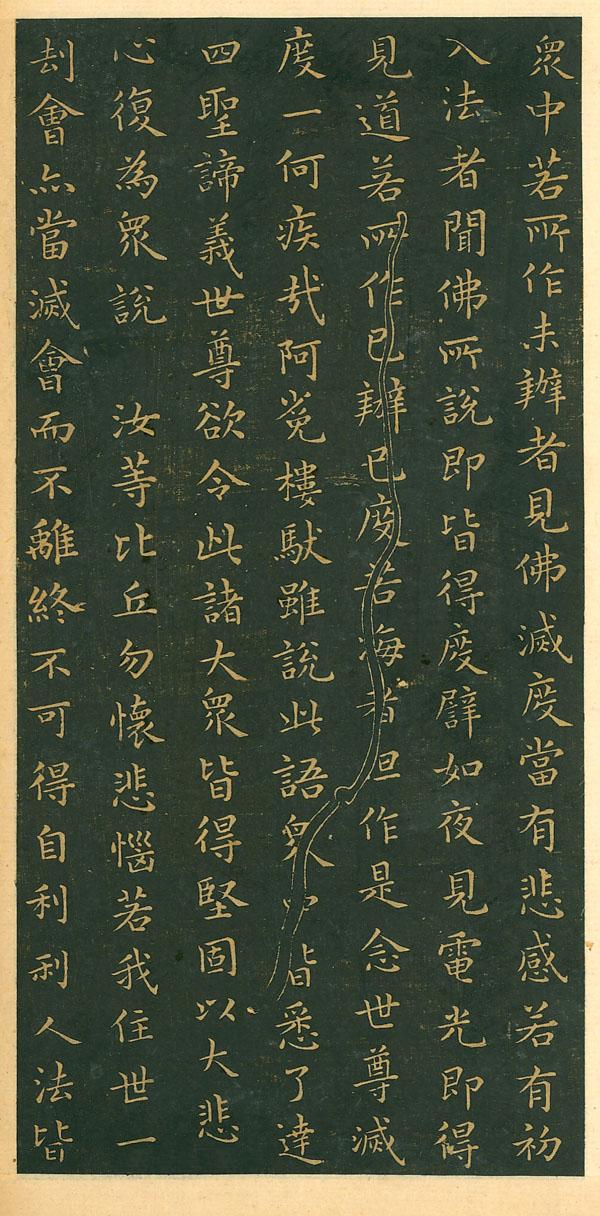 眾中若所作未辦者見佛滅度當有悲感若有初
入法者聞佛所說即皆得度譬如夜見電光即得
見道若所作已辦已度苦海者但作是念世尊滅
度一何疾哉阿㝹樓馱雖說此語眾中皆悉了達
四聖諦義世尊欲令此諸大眾皆得堅固以大悲
心復為眾說　汝等比丘勿懷悲惱若我住世一
刦會亦當滅會而不離終不可得自利利人法皆